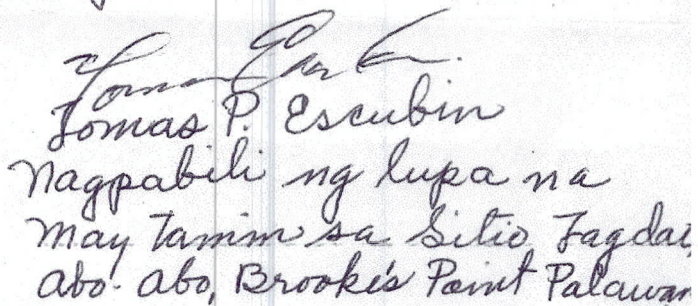 Tomas P. Escubin
Nagpabili ng lupa na
may Tanim sa Sitio
Abo-Abo, Brooke's Point Palawan